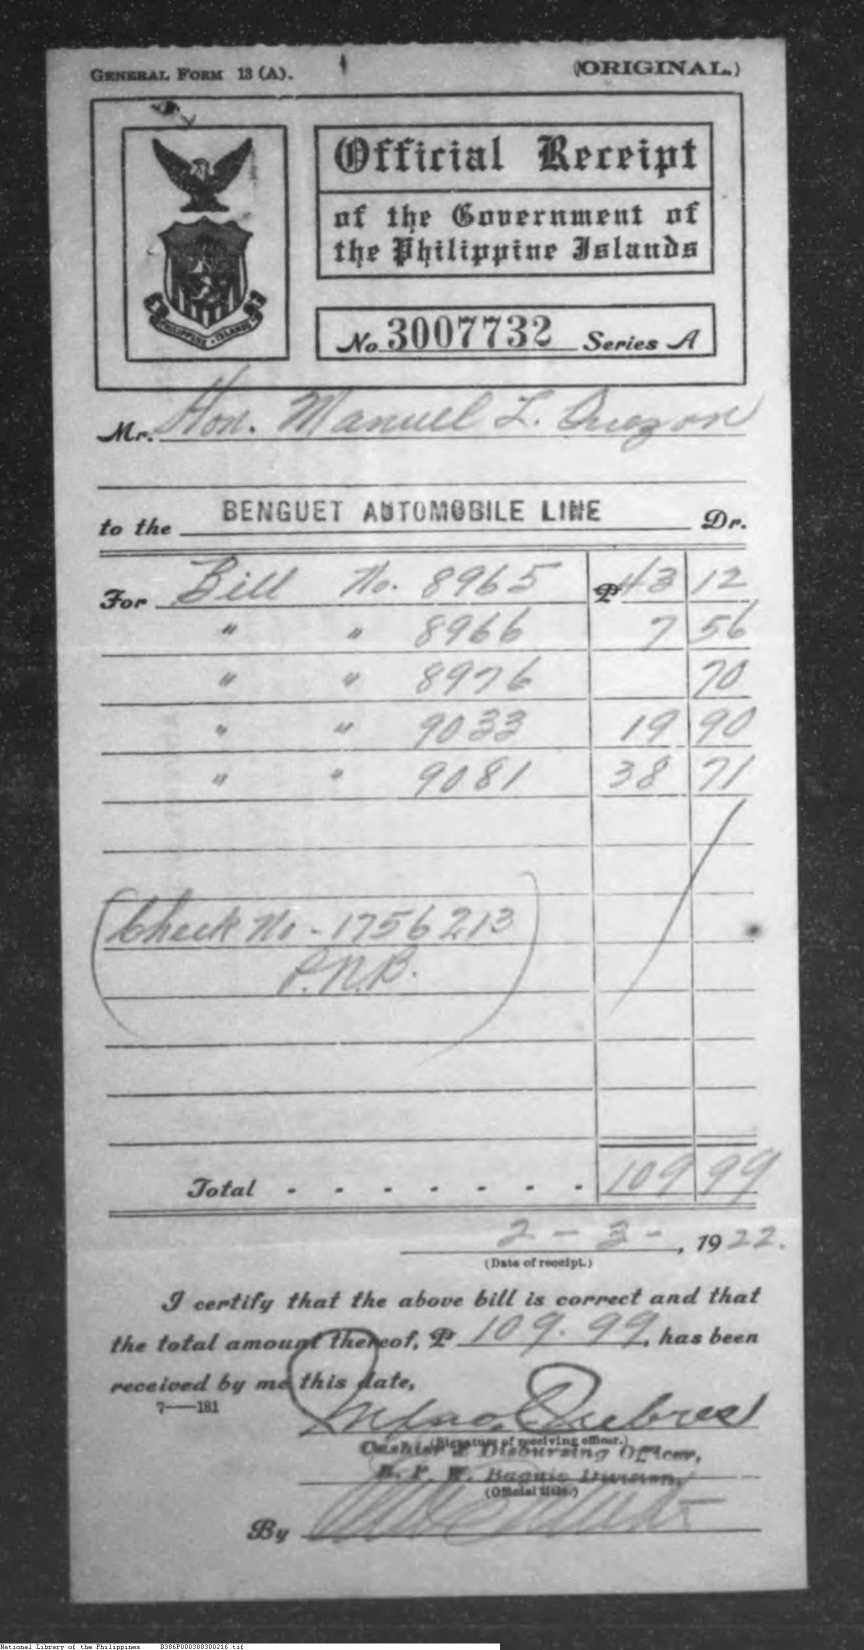 GENERAL FORM 13 (A).
(ORIGINAL.)
PHILIPPINE ISLANDS
Official Receipt
of the Government of
the Philippine Islands
No. 3007732 Series A
Mr. Hon. Manuel L. Quezon
to the BENGUET AUTOMOBILE LINE Dr.
For Bill No. 8965 ₱ 43 12
" " 8966 7 56
" " 8976 70
" " 9033 19 90
" " 9081 38 71
Check No - 1756213
P.N.B.
Total - - - - - - - 109 99
2 - 3 - , 1922.
(Date of receipt.)
I certify that the above bill is correct and that
the total amount thereof, ₱ 109.99, has been
received by me this date,
7—181
(Signature of receiving officer.)
Cashier & Disbursing Officer,
B. P. W. Baguio Division,
(Official title.)
By
National Library of the Philippines B386P000300300216.tif